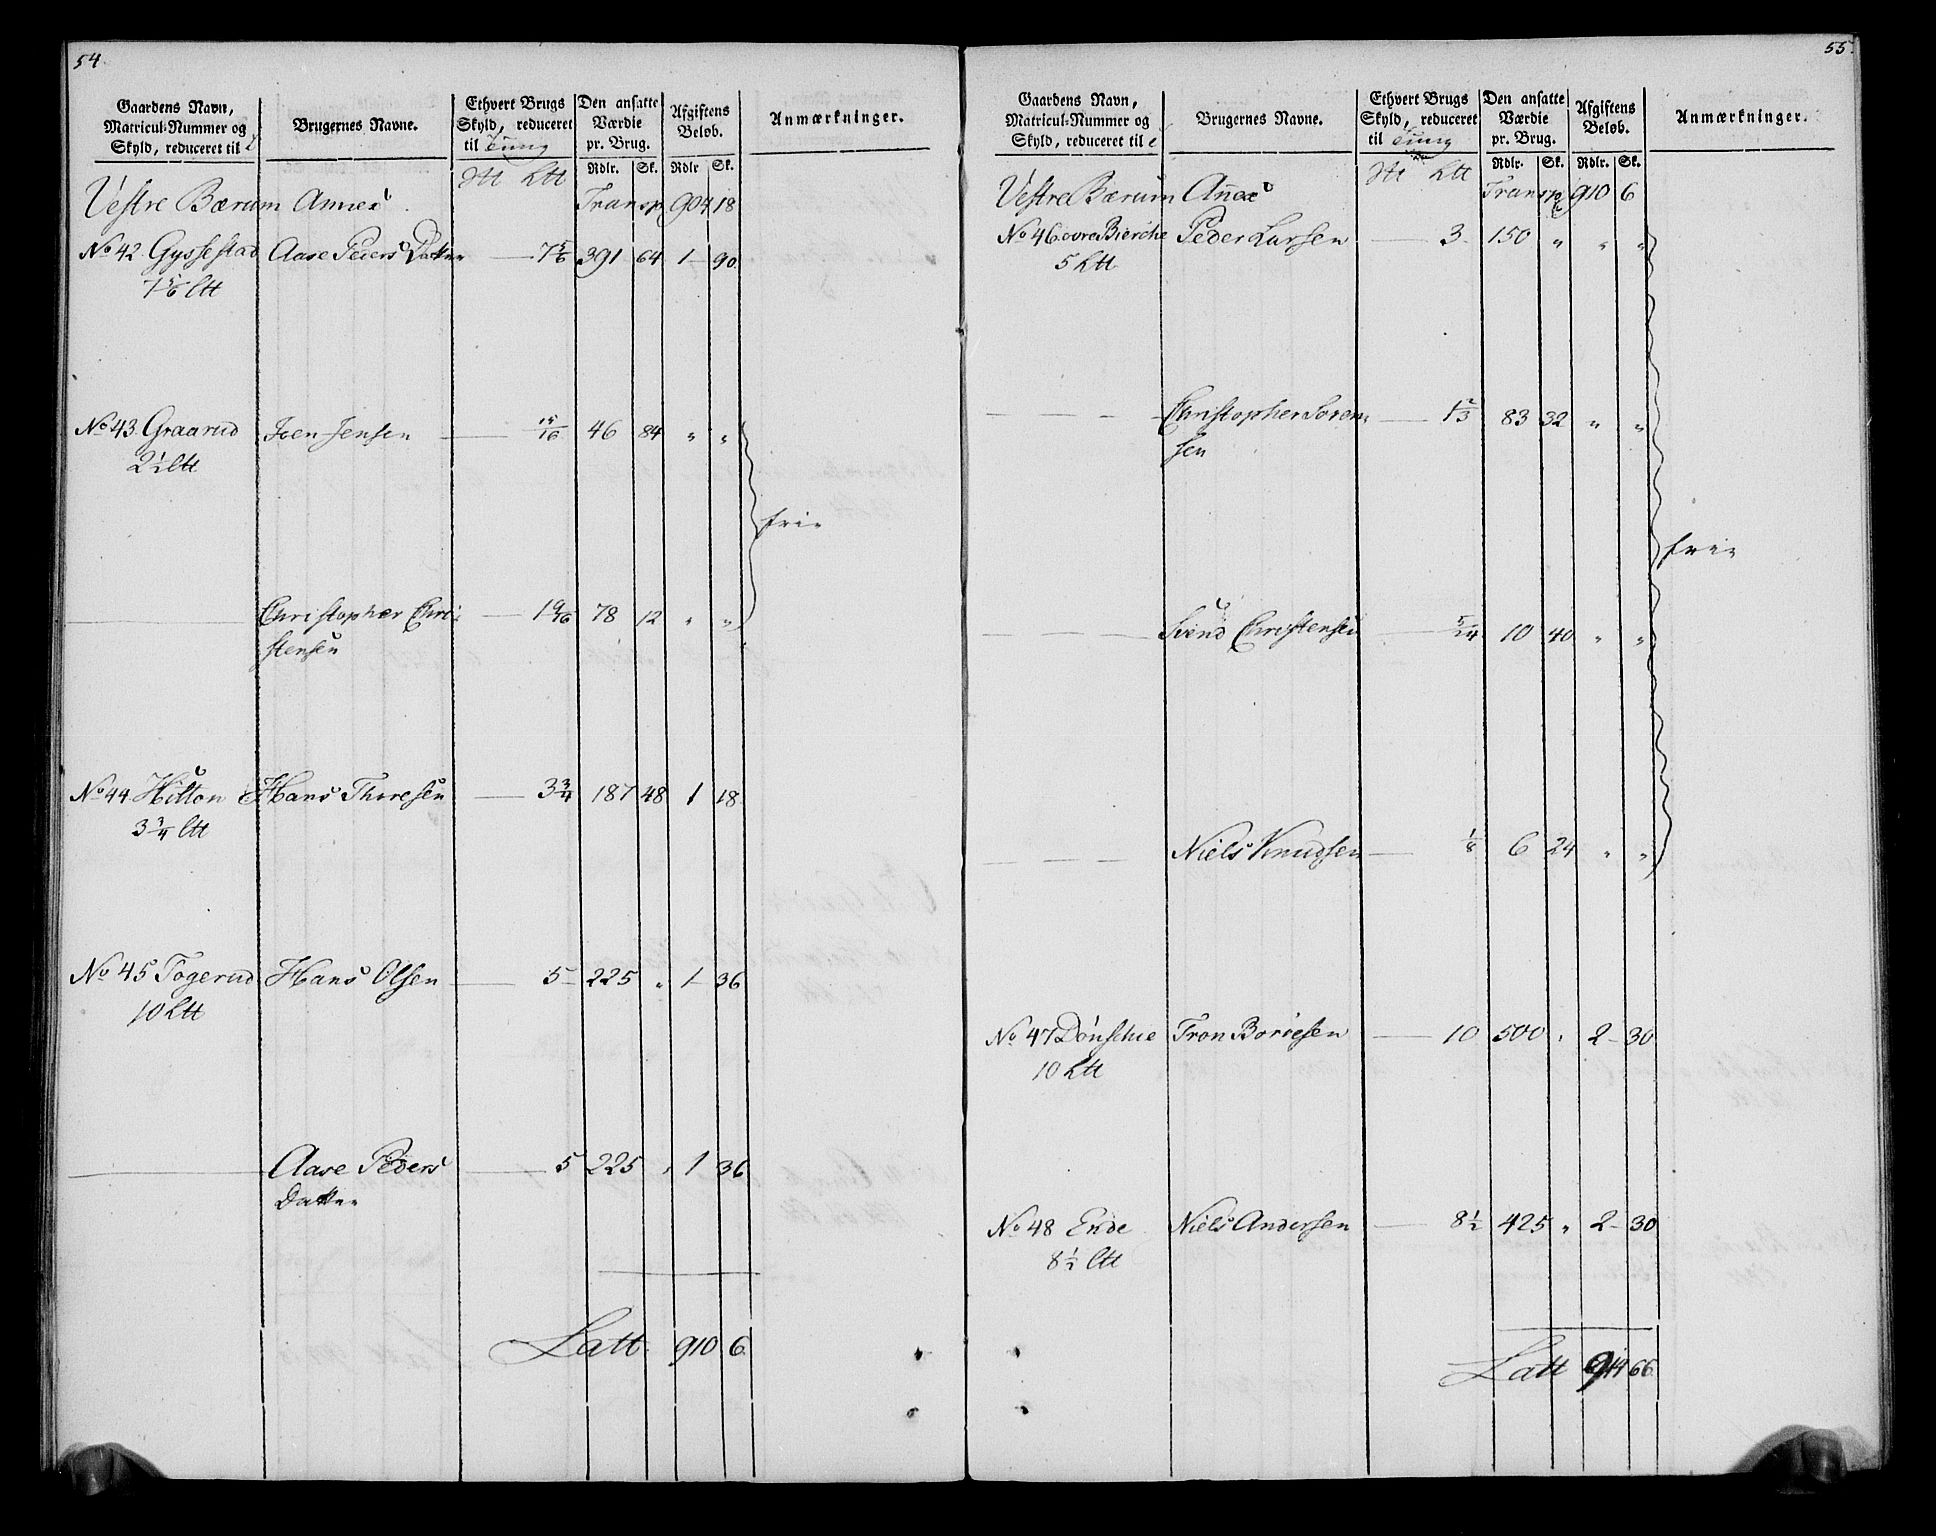 54.
Gaardens Navn, Matricul-Nummer og Skyld, reduceret til
Brugernes Navne.
Ethvert Brugs Skyld, reduceret til Tung
Den ansatte Værdie pr. Brug.
Afgiftens Beløb.
Anmærkninger.
Rdlr. Sk. Rdlr Sk.
Vestre Bærum Annex Transp 904 18
No 42. Gyssestad Aase Peders Datter — 7 5/6 391 64 1 90
7 5/6 Ltt
No 43. Graarud Joen Jensen — 15/16 46 84 " "
2 1/2 Ltt
frie
— Christopher Chri: — 1 9/16 78 12 " "
stensen
No 44. Hilton Hans Thoresen — 3 3/4 187 48 1 18
3 3/4 Ltt
No 45 Togerud Hans Olsen — 5 225 " 1 36
10 Ltt
— Aase Peders — 5 225 " 1 36
Datter
Latt. 910 6
55.
Gaardens Navn, Matricul-Nummer og Skyld, reduceret til
Brugernes Navne.
Ethvert Brugs Skyld, reduceret til Tung
Den ansatte Værdie pr. Brug.
Afgiftens Beløb.
Anmærkninger.
Rdlr. Sk. Rdlr. Sk.
Vestre Bærum Annex Transp 910 6
No 46. øvre Bierche Peder Larsen — 3 150 " " "
5 Ltt
— Christopher Soren: — 1 2/3 83 32 " "
sen
frie
— Svend Christensen — 5/24 10 40 " "
— Niels Knudsen — 1/8 6 24 " "
No 47 Dønschie Tron Boriesen — 10 500 " 2 30
10 Ltt
No 48 Ende Niels Andersen — 8 1/2 425 " 2 30
8 1/2 Ltt
Latt 914 66